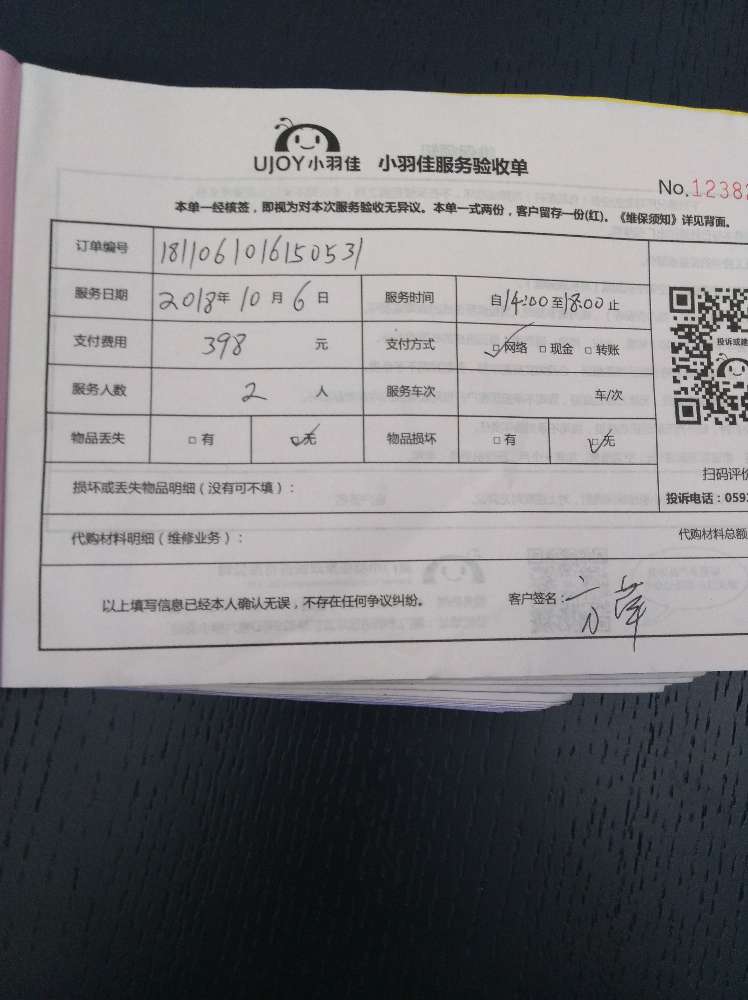 UJOY小羽佳 小羽佳服务验收单
No.12382
本单一经核签，即视为对本次服务验收无异议。本单一式两份，客户留存一份(红)。《维保须知》详见背面。
订单编号 181106101615053 1
服务日期 2018年 10月 6日 服务时间 自14:00至18:00止
支付费用 398 元 支付方式 ☑网络 □现金 □转账
服务人数 2 人 服务车次 车/次
物品丢失 □有 ☑无 物品损坏 □有 ☑无
扫码评价
损坏或丢失物品明细（没有可不填）：
投诉电话：059
代购材料明细（维修业务）： 代购材料总额
以上填写信息已经本人确认无误，不存在任何争议纠纷。 客户签名：